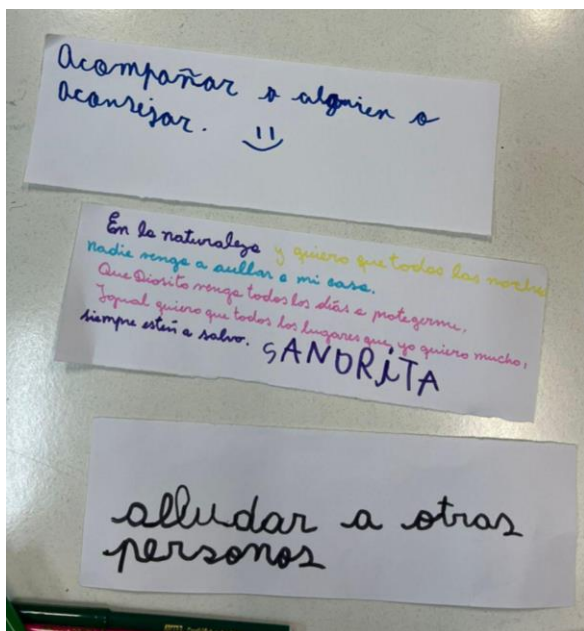 Acompañar a alguien o
aconsejar.
En la naturaleza y quiero que todas las noches
nadie venga a aullar a mi casa.
Que Diosito venga todos los días a protegerme,
Igual quiero que todos los lugares que yo quiero mucho,
siempre esten a salvo. SANDRiTA
alludar a otras
personas